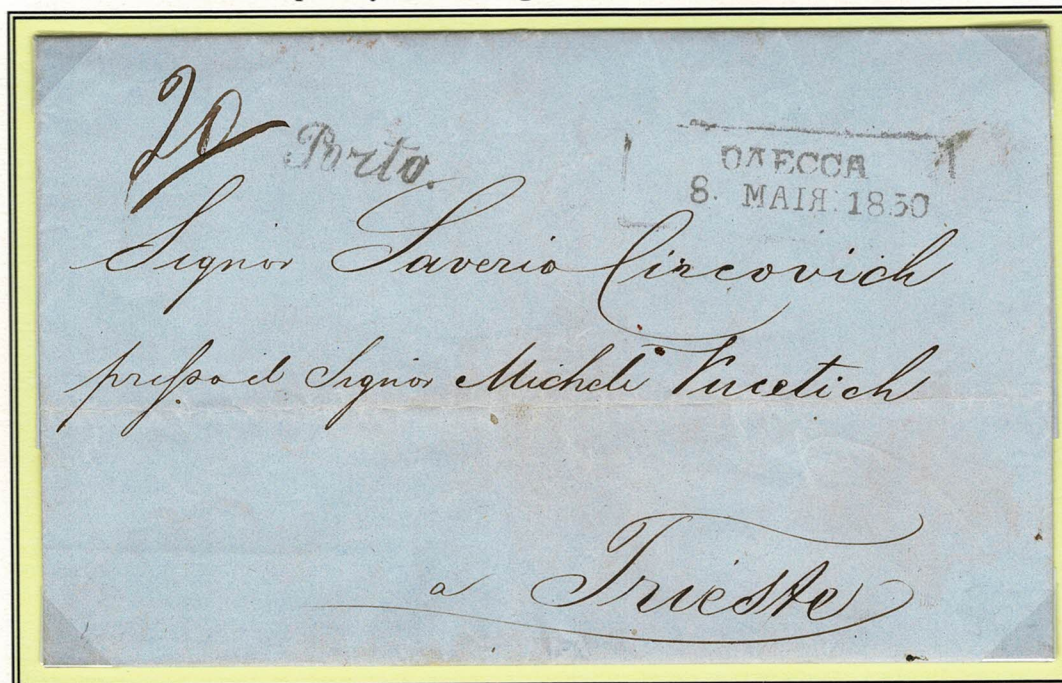 20
Porto.
ОДЕССА
8. МАІЯ. 1850
Signor Saverio Circovich
presso il Signor Michele Vucetich
a Trieste